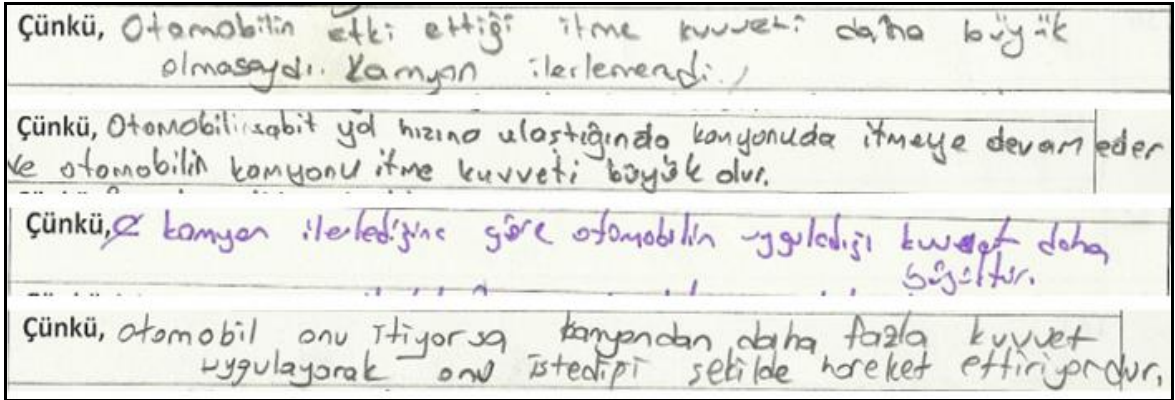 Çünkü, Otomobilin etki ettiği itme kuvveti daha büyük
olmasaydı. Kamyon ilerlemezdi.
Çünkü, Otomobil sabit yol hızına ulaştığında kamyonuda itmeye devam eder
ve otomobilin kamyonu itme kuvveti büyük olur.
Çünkü, kamyon ilerlediğine göre otomobilin uyguladığı kuvvet daha
büyüktür.
Çünkü, otomobil onu itiyorsa kamyondan daha fazla kuvvet
uygulayarak onu istediği şekilde hareket ettiriyordur.